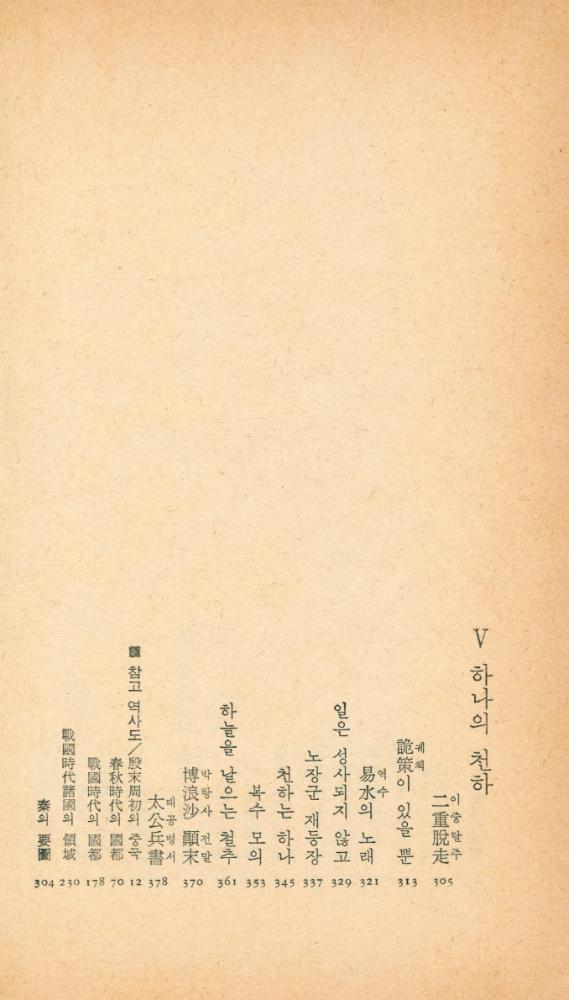 V 하나의 천하
二重脫走 이중탈주 305
詭策이 있을 뿐 궤책 313
易水의 노래 역수 321
일은 성사되지 않고 329
노장군 재등장 337
천하는 하나 345
복수 모의 353
하늘을 날으는 철추 361
博浪沙 顚末 박랑사 전말 370
太公兵書 태공병서 378
참고 역사도／殷末周初의 중국 12
春秋時代의 國都 70
戰國時代의 國都 178
戰國時代諸國의 領域 230
秦의 要圖 304